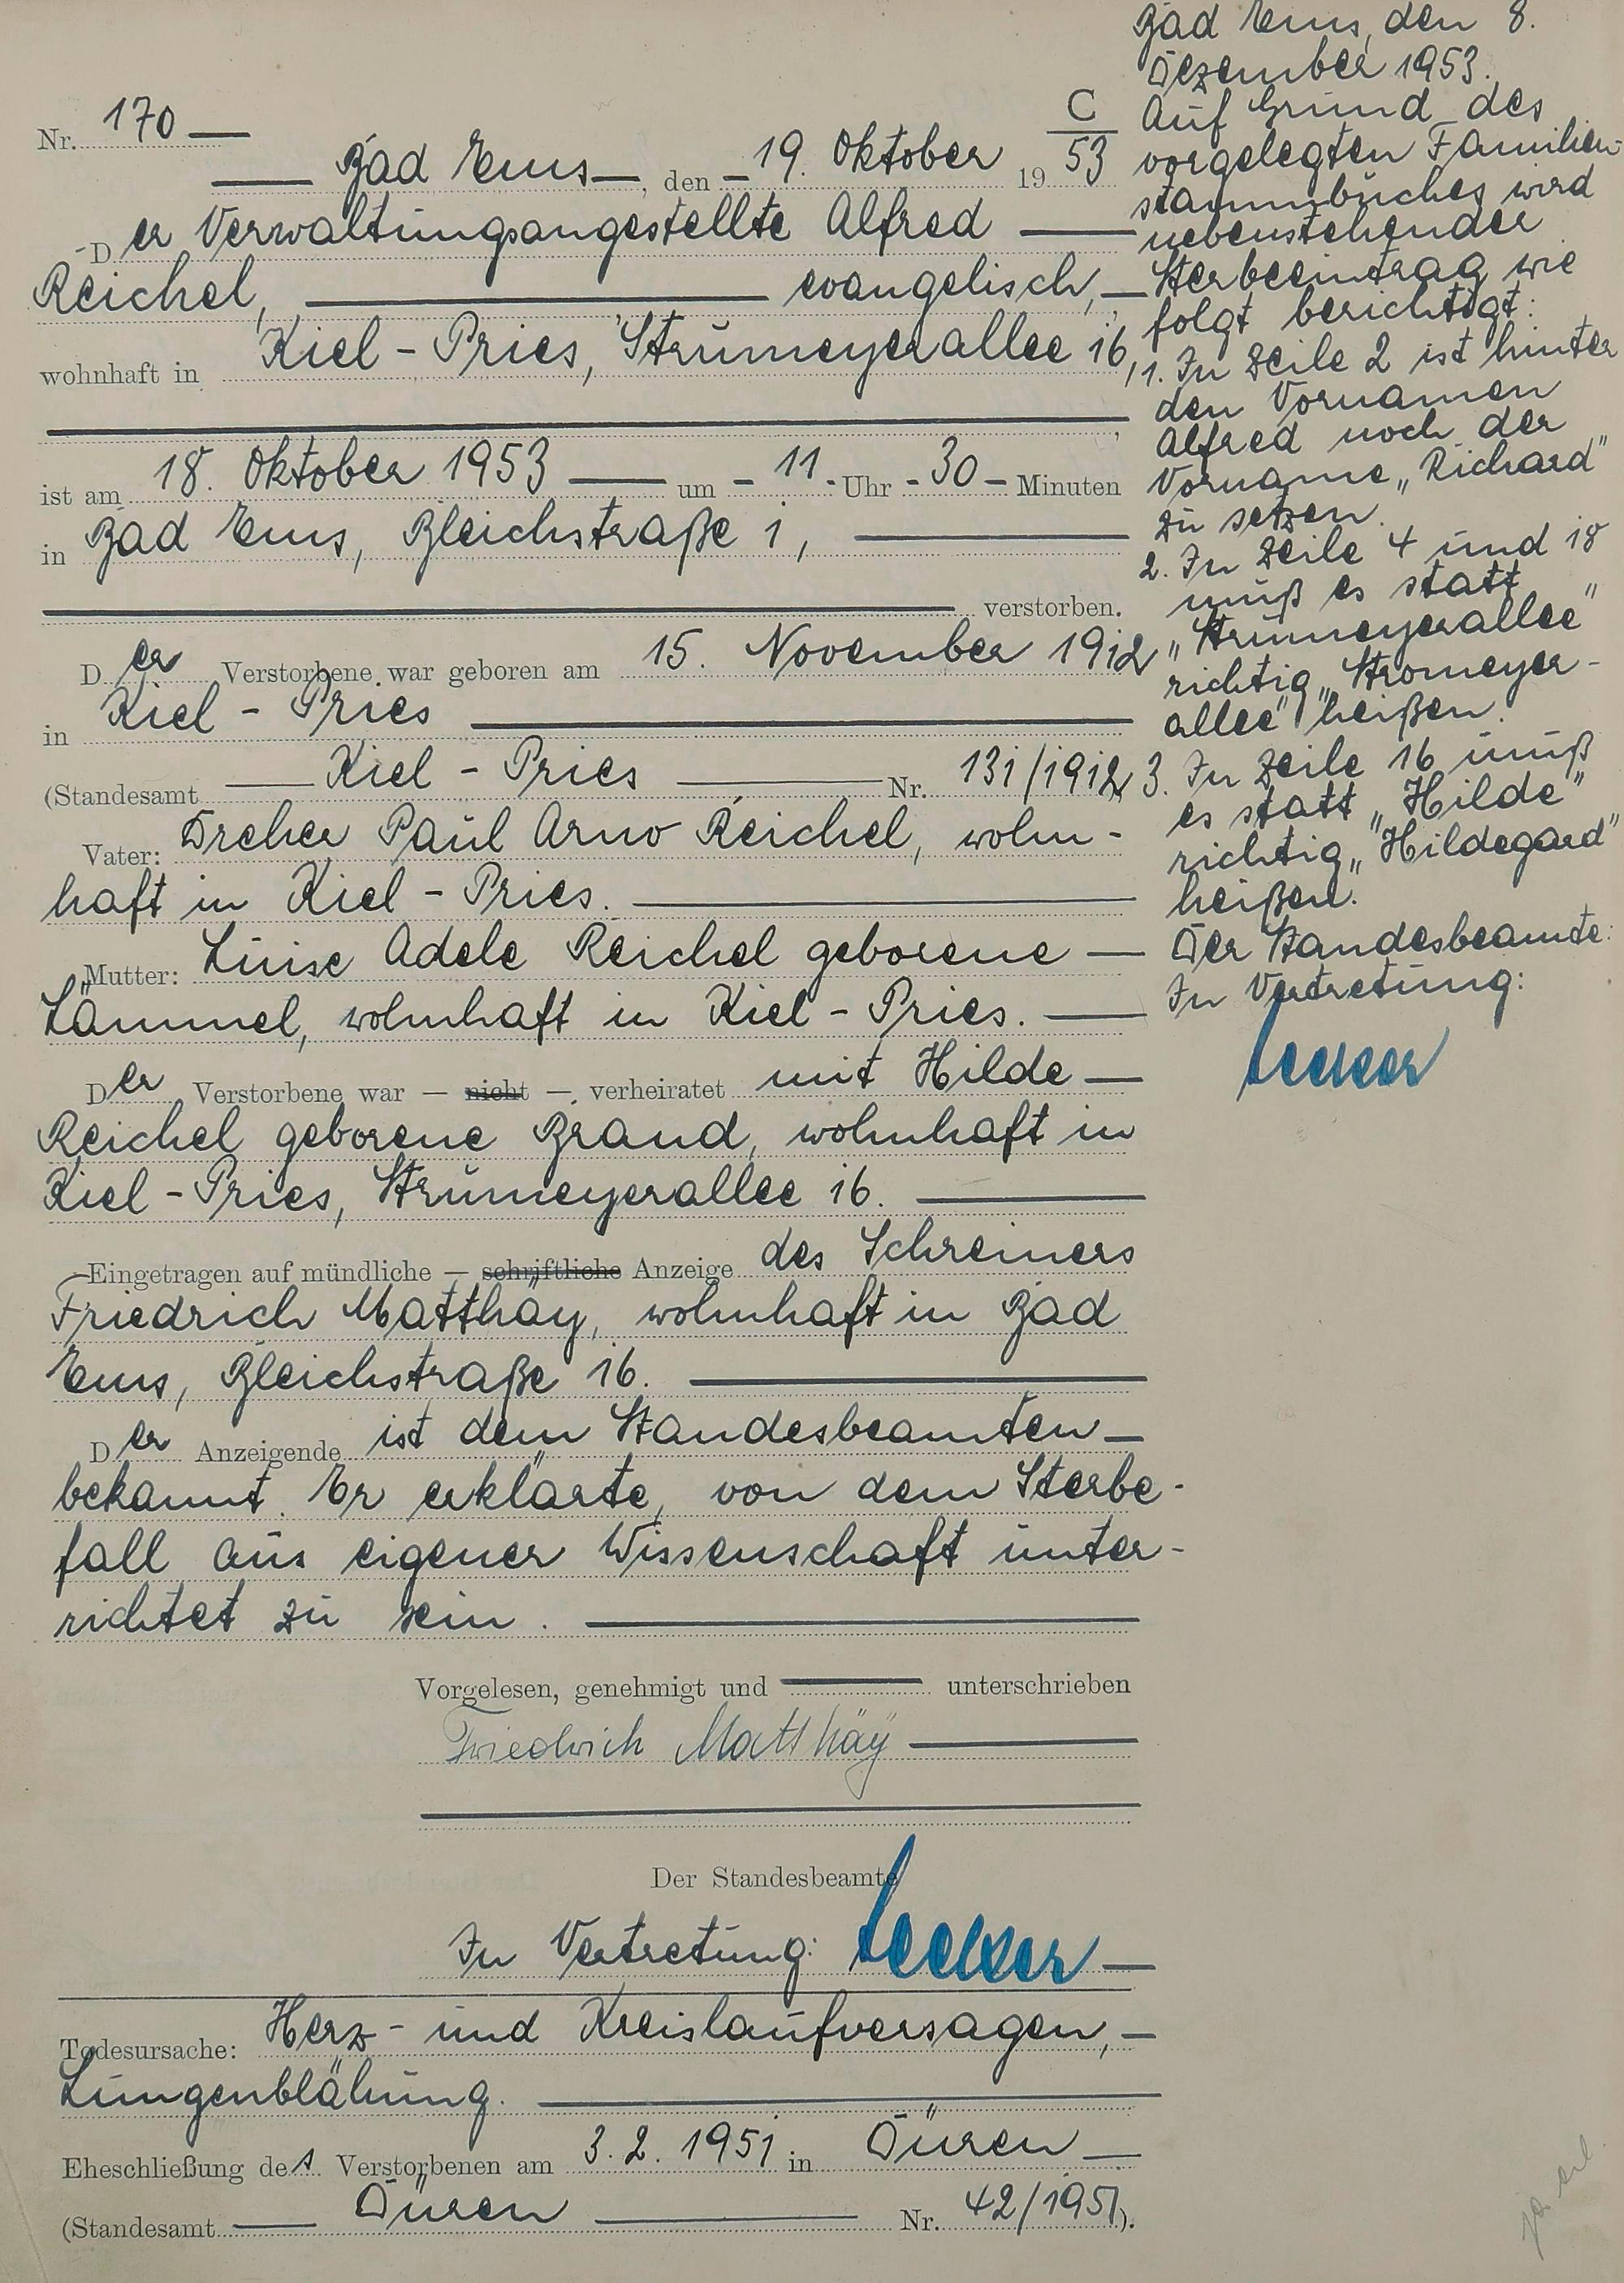 Nr. 170
C
Bad Ems, den 19. Oktober 1953
Der Verwaltungsangestellte Alfred
Reichel, evangelisch,
wohnhaft in Kiel - Pries, Strumeyerallee 16,
ist am 18. Oktober 1953 um 11 Uhr 30 Minuten
in Bad Ems, Bleichstraße 1,
verstorben.
Der Verstorbene war geboren am 15. November 1912
in Kiel - Pries
(Standesamt Kiel - Pries Nr. 131/1912
Vater: Dreher Paul Arno Reichel, wohn-
haft in Kiel - Pries.
Mutter: Luise Adele Reichel geborene
Lämmel, wohnhaft in Kiel - Pries.
Der Verstorbene war — nicht — verheiratet mit Hilde
Reichel geborene Brand, wohnhaft in
Kiel - Pries, Strumeyerallee 16.
Eingetragen auf mündliche — schriftliche Anzeige des Schreiners
Friedrich Matthäy, wohnhaft in Bad
Ems, Bleichstraße 16.
Der Anzeigende ist dem Standesbeamten
bekannt. Er erklärte, von dem Sterbe-
fall aus eigener Wissenschaft unter-
richtet zu sein.
Vorgelesen, genehmigt und unterschrieben
Friedrich Matthäy
Der Standesbeamte
In Vertretung: Becker
Todesursache: Herz- und Kreislaufversagen,
Lungenblähung.
Eheschließung des Verstorbenen am 3.2.1951 in Düren
(Standesamt Düren Nr. 42/1951).
Bad Ems, den 8.
Dezember 1953.
Auf Grund des
vorgelegten Familien-
stammbuches wird
nebenstehender
Sterbeeintrag wie
folgt berichtigt:
1. In Zeile 2 ist hinter
den Vornamen
Alfred noch der
Vorname „Richard"
zu setzen.
2. In Zeile 4 und 18
muß es statt
„Strumeyerallee"
richtig „Stromeyer-
allee" heißen.
3. In Zeile 16 muß
es statt „Hilde"
richtig „Hildegard"
heißen.
Der Standesbeamte:
In Vertretung:
Becker